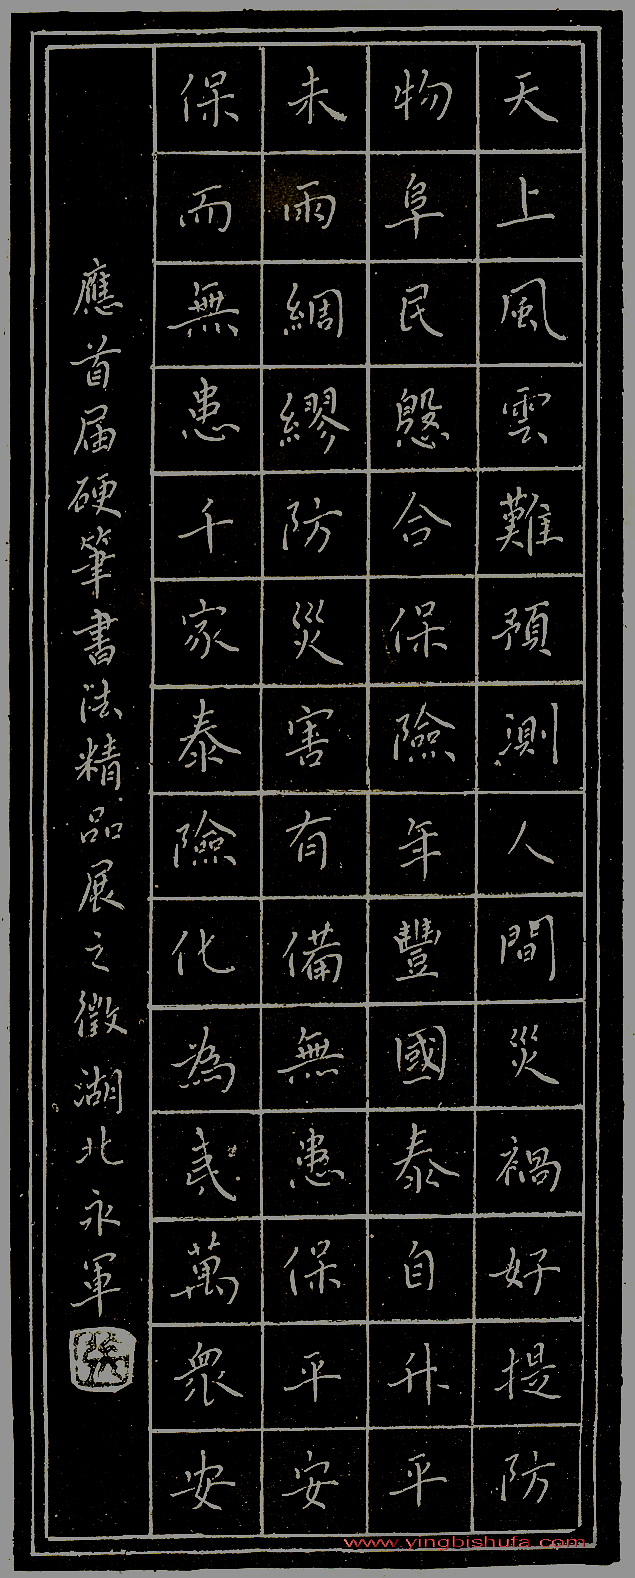 天上風雲難預測人間災禍好提防
物阜民慇合保險年豐國泰自升平
未雨綢繆防災害有備無患保平安
保而無患千家泰險化為夷萬眾安
應首届硬筆書法精品展之徵湖北永軍
張
www.yingbishufa.com